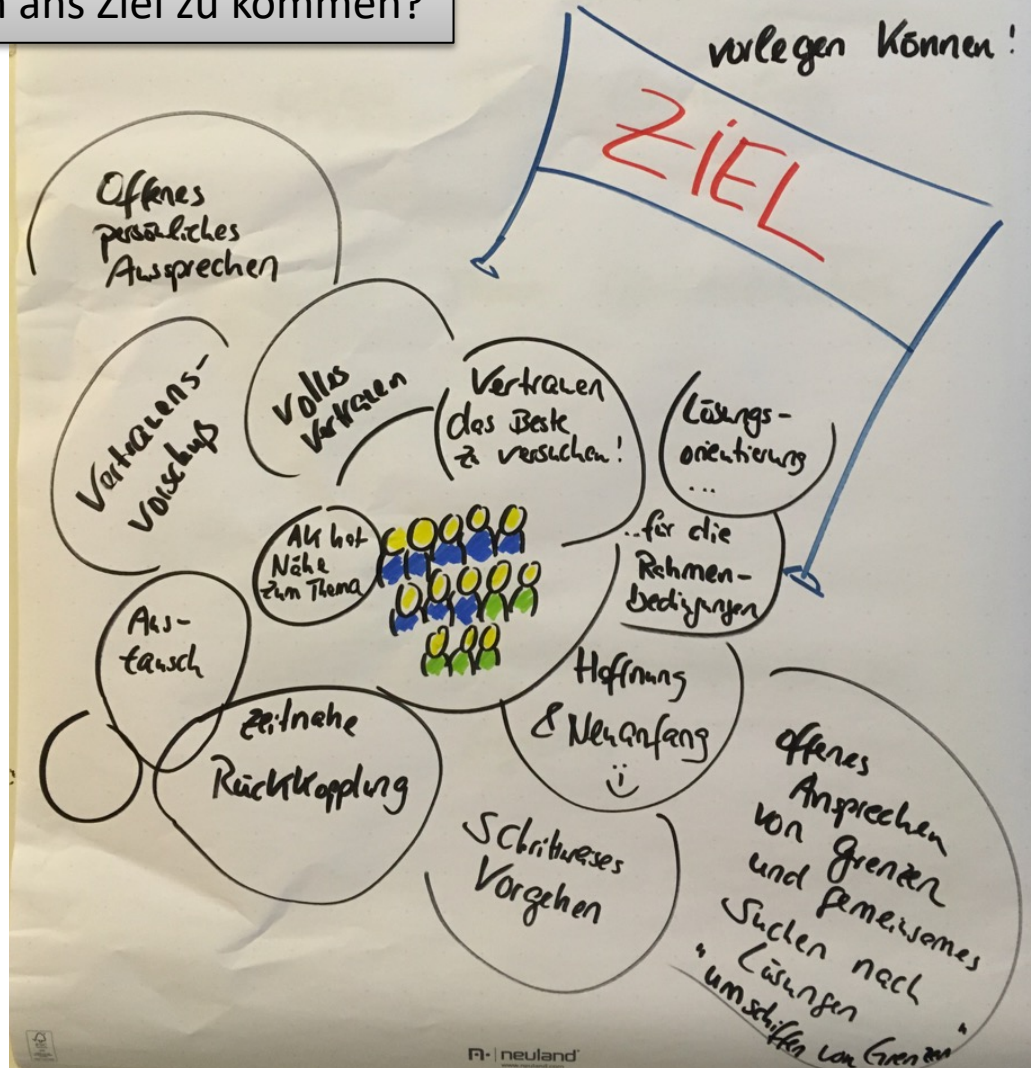 ans Ziel zu kommen?
vorlegen können!
ZiEL
Offenes
persönliches
Aussprechen
Vertrauens-
vorschuß
Volles
Vertrauen
Vertrauen
das Beste
zu versuchen!
Lösungs-
orientierung
...
...für die
Rahmen-
bedingungen
AK hat
Nähe
zum Thema
Aus-
tausch
zeitnahe
Rückkopplung
Hoffnung
& Neuanfang
Schrittweises
Vorgehen
offenes
Ansprechen
von Grenzen
und gemeinsames
Suchen nach
Lösungen
"umschiffen von Grenzen"
neuland